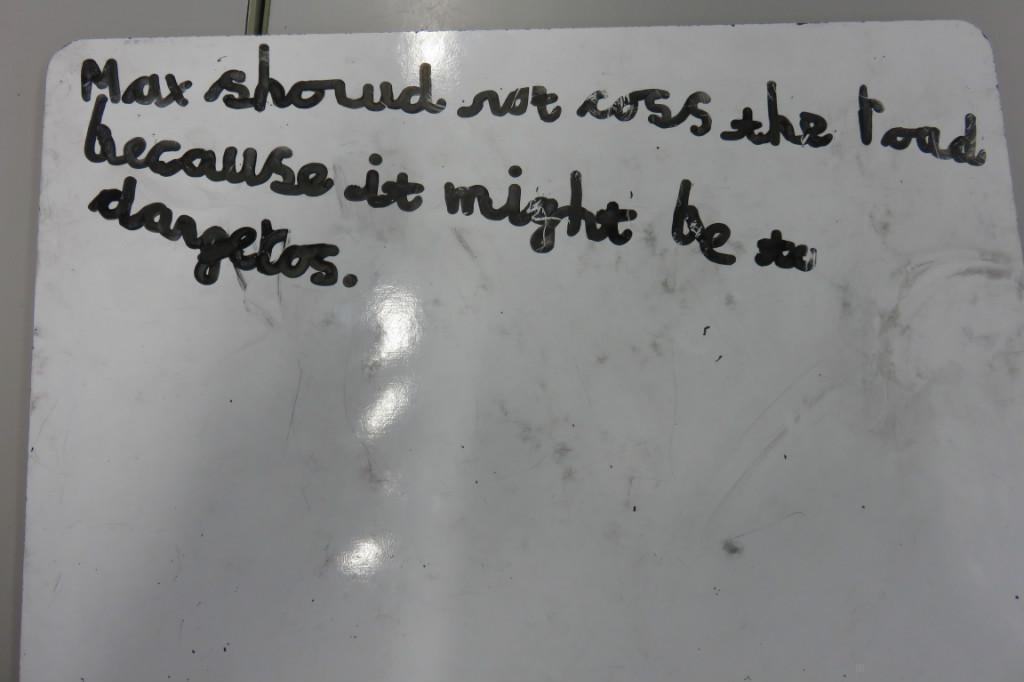 Max shoud not coss the road
because it might be to
dangetos.